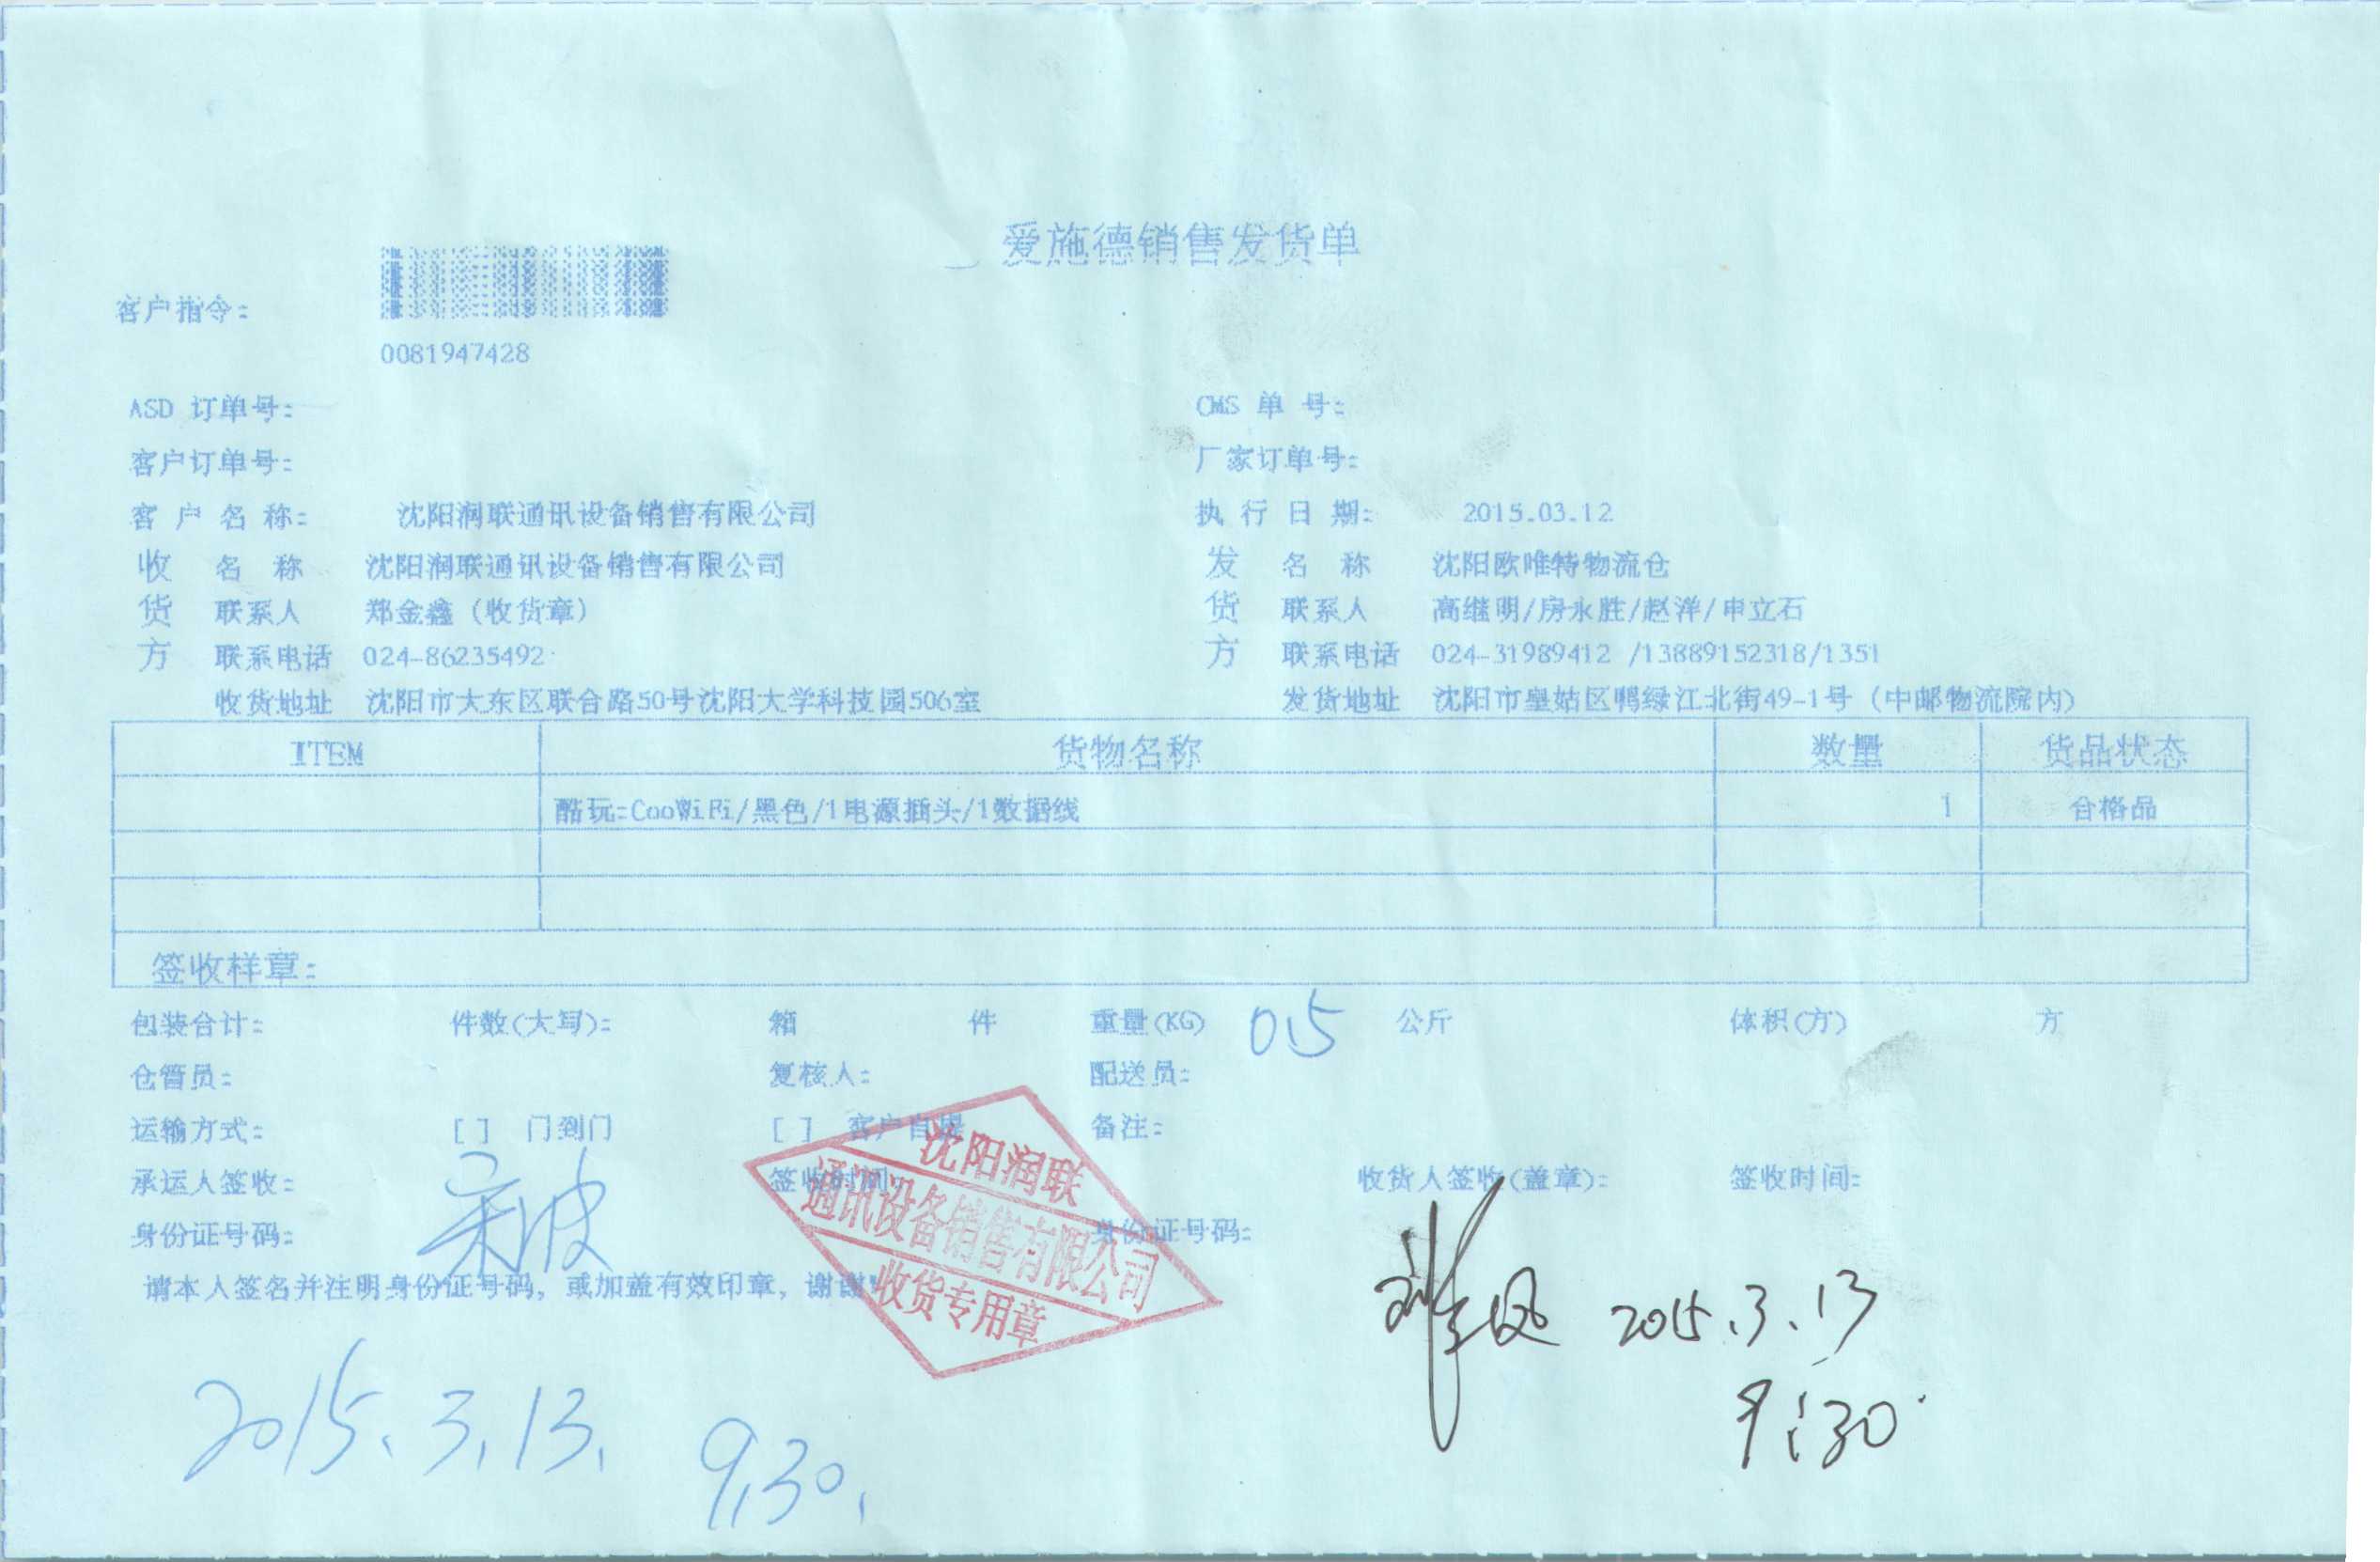 爱施德销售发货单
客户指令:
0081947428
ASD 订单号: CMS 单 号:
客户订单号: 厂家订单号:
客 户 名 称: 沈阳润联通讯设备销售有限公司 执 行 日 期: 2015.03.12
收 名 称 沈阳润联通讯设备销售有限公司 发 名 称 沈阳欧唯特物流仓
货 联系人 郑金鑫 (收货章) 货 联系人 高继明/房永胜/赵洋/申立石
方 联系电话 024-86235492 方 联系电话 024-31989412 /13889152318/1351
收货地址 沈阳市大东区联合路50号沈阳大学科技园506室 发货地址 沈阳市皇姑区鸭绿江北街49-1号 (中邮物流院内)
ITEM 货物名称 数量 货品状态
酷玩:CooWiFi/黑色/1电源插头/1数据线 1 合格品
签收样章:
包装合计: 件数(大写): 箱 件 重量(KG) 0.5 公斤 体积(方) 方
仓管员: 复核人: 配送员:
运输方式: [ ] 门到门 [ ] 客户自提 备注:
承运人签收: 宋波 签收时间: 收货人签收(盖章): 签收时间:
身份证号码: 身份证号码:
请本人签名并注明身份证号码, 或加盖有效印章, 谢谢!
沈阳润联
通讯设备销售有限公司
收货专用章
2015.3.13
9:30
2015.3.13.
9.30.